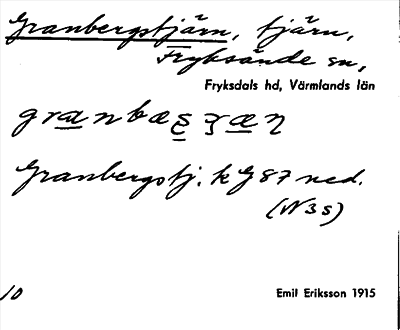 Granbergstjärn, tjärn,
Fryksände sn,
Fryksdals hd, Värmlands län
Granbergstj. k G 87 ned.
(N 3 s)
10
Emil Eriksson 1915